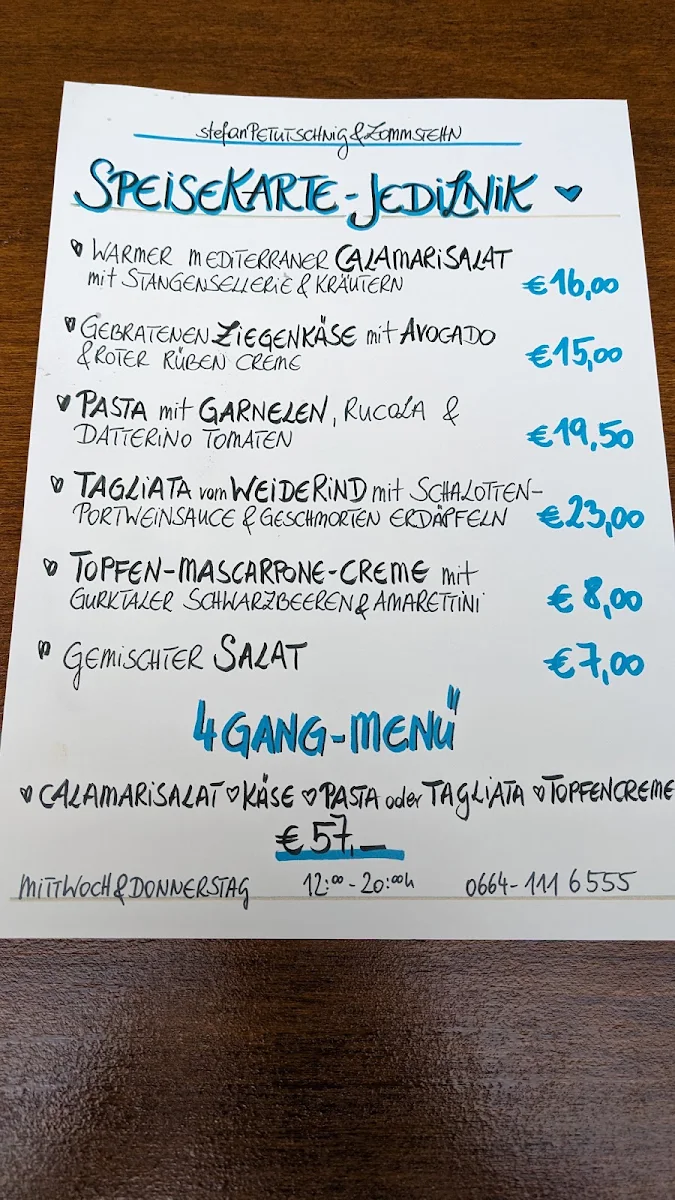 stefanPETUTSCHNIG&ZOMMSTEHN
SPEISEKARTE-JEDILNIK
WARMER MEDITERRANER CALAMARISALAT
mit STANGENSELLERIE & KRÄUTERN €16,00
GEBRATENEN ZIEGENKÄSE mit AVOCADO
& ROTER RÜBEN CREME €15,00
PASTA mit GARNELEN, RUCOLA &
DATTERINO TOMATEN €19,50
TAGLIATA vom WEIDERIND mit SCHALOTTEN-
PORTWEINSAUCE & GESCHMORTEN ERDÄPFELN €23,00
TOPFEN-MASCARPONE-CREME mit
GURKTALER SCHWARZBEEREN & AMARETTINI €8,00
GEMISCHTER SALAT €7,00
4GANG-MENÜ
CALAMARISALAT ♡ KÄSE ♡ PASTA oder TAGLIATA ♡ TOPFENCREME
€57,—
MITTWOCH & DONNERSTAG 12:00-20:00h 0664-111 6555